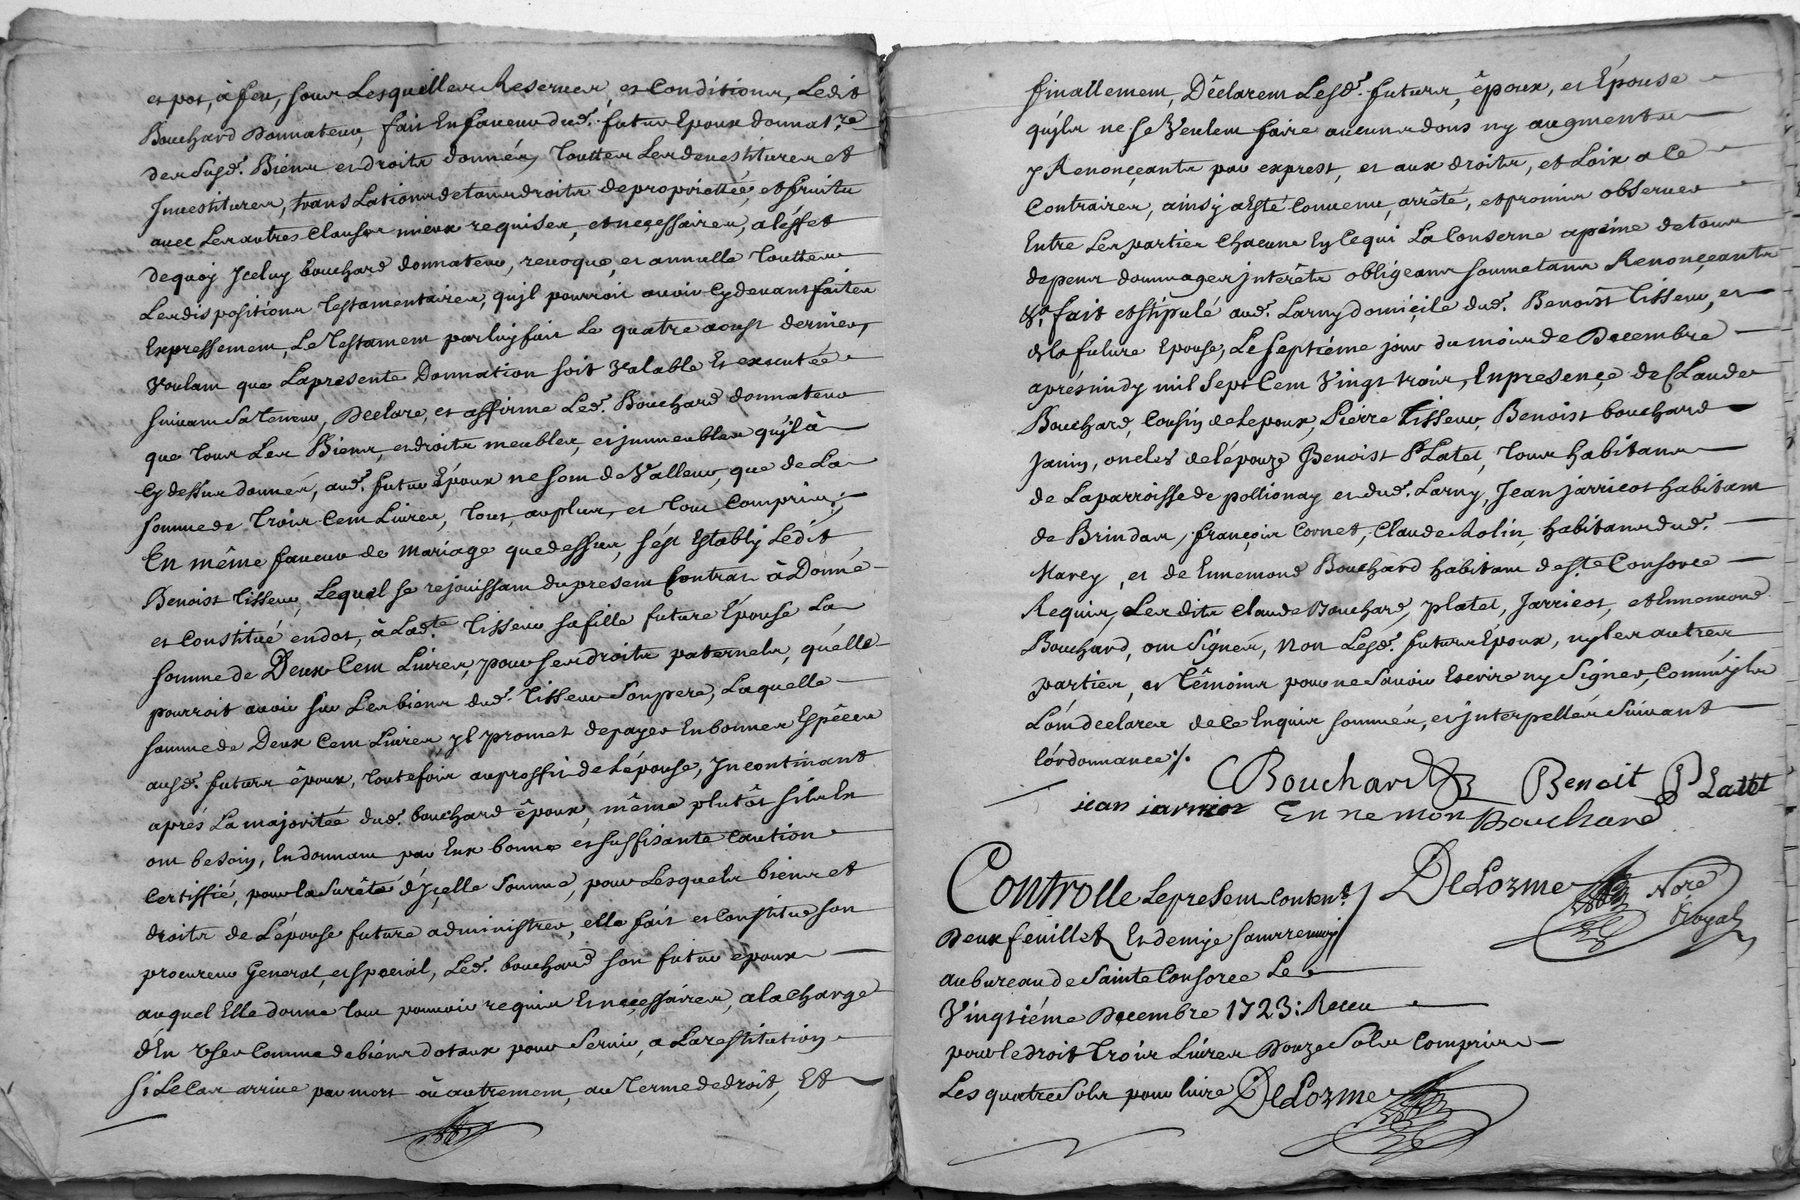 et pot, à feu, sous Lesquelles Reserves, et Conditions, Ledit
Bouchard Donnateur, fait En faveur dud. futur Epoux donnat.re
des susd. Biens et droits donnés, Touttes Les devestitures et
Jnvestitures, translations de tous droits de proprietté, et fruits
avec Les autres Clauses mieux requises, et neçessaires, a léffet
dequoy Jceluy bouchard donnateur, revoque, et annulle Touttes
Les dispositions Testamentaires, qujl pourroit avoir Cydevant faites
Expressement, Le Testament par luy fait Le quatre aoust dernier,
Voulant que Lapresente Donnation soit Valable Et executée
suivant Sa teneur, Declare, et affirme Led. Bouchard donnateur
que Tous Les Biens, et droits meubles, et jmmeubles qujl à
Cydessus donnés, aud. futur Époux ne sont de Valleur, que de La
somme de Trois Cent Livres, Tout, au plus, et Tout Compris;
En même faveur de mariage que dessus, s'ést Estably Ledit
Benoist Tisseur, Lequel se rejouissant du present Contrat à Donné
et Constitué en dot, à Lad.te Tisseur sa fille future Épouse La
somme de Deux Cent Livres, pour ses droits paternels, quélle
pourroit avoir sur Les biens dud. Tisseur Son pere, Laquelle
somme de Deux Cent Livres, yl promet de payer En bonnes Espêces
ausd. futurs époux, toutefois au proffit de Lépouse, Jncontinant
aprés La majoritée dud. bouchard époux, même plutôt sils En
ont besoin, En donnant par Eux bonne et suffisante Caution
Certiffié, pour la Sureté d'Jçelle Somme, pour Lesquels biens et
droits de L'épouse future administrer, elle fait et Constitue son
procureur General, et special, Led. bouchard son futur époux
auquel Elle donne Tout pouvoir requis Et neçessaires, a la Charge
d'En User Comme de biens dotaux pour Servir, a La restitution
si Le Cas arrive par mort où autrement, au Terme de droit, Et
finallement, Déclarent Lesd. futurs, époux, et Épouse
qujls ne se Veulent faire aucuns dons ny augments
y Renonçeants par exprest, et aux droits, et Loix a Ce
Contraires, ainsy a Esté Convenu, arrêté, et promis observer
Entre Les parties Chacune En Cequi La Conserne a peine de tous
depens dommages jnterêts obligeans soumetans Renonçeants
&a. fait et stipulé aud. Larny domiçile dud. Benoist Tisseur, et
de la future Epouse, Le septiéme jour du mois de Decembre
aprés midy mil Sept Cent Vingt trois, En presençe de Claude
Bouchard, Cousin de Lepoux, Pierre Tisseur, Benoist bouchard
Janin, oncles de lépouze Benoist P Latet, Tous habitans
de La parroisse de pollionay et dud. Larny, Jean jarricot habitant
de Brindas, françois Cornet, Claude Rolin, habitans dud.
Marcy, et de Ennemond Bouchard habitant de S.te Consorce
Requis, Les dits Claude Bouchard, platet, Jarricot, et Ennemond
Bouchard, ont Signés, Non Lesd. futurs Époux, ny les autres
parties, et Témoins pour ne Savoir Escrire ny Signer, Comm'jls
L'ónt déclarés de Ce Enquis sommés, et jnterpellés Suivant
lórdonnance ./.
C Bouchard Benoit P Latet
jean jarricot Ennemon Bouchard
Controllé Le present Conten.t DeLorme Nore
Deux feuillets Et demje sans renvoy Royal
au bureau de Sainte Consorce Le
Vingtiéme Decembre 1723: Receu
pour le droit Trois Livres Douze Sols Compris
Les quatre Sols pour livre DeLorme